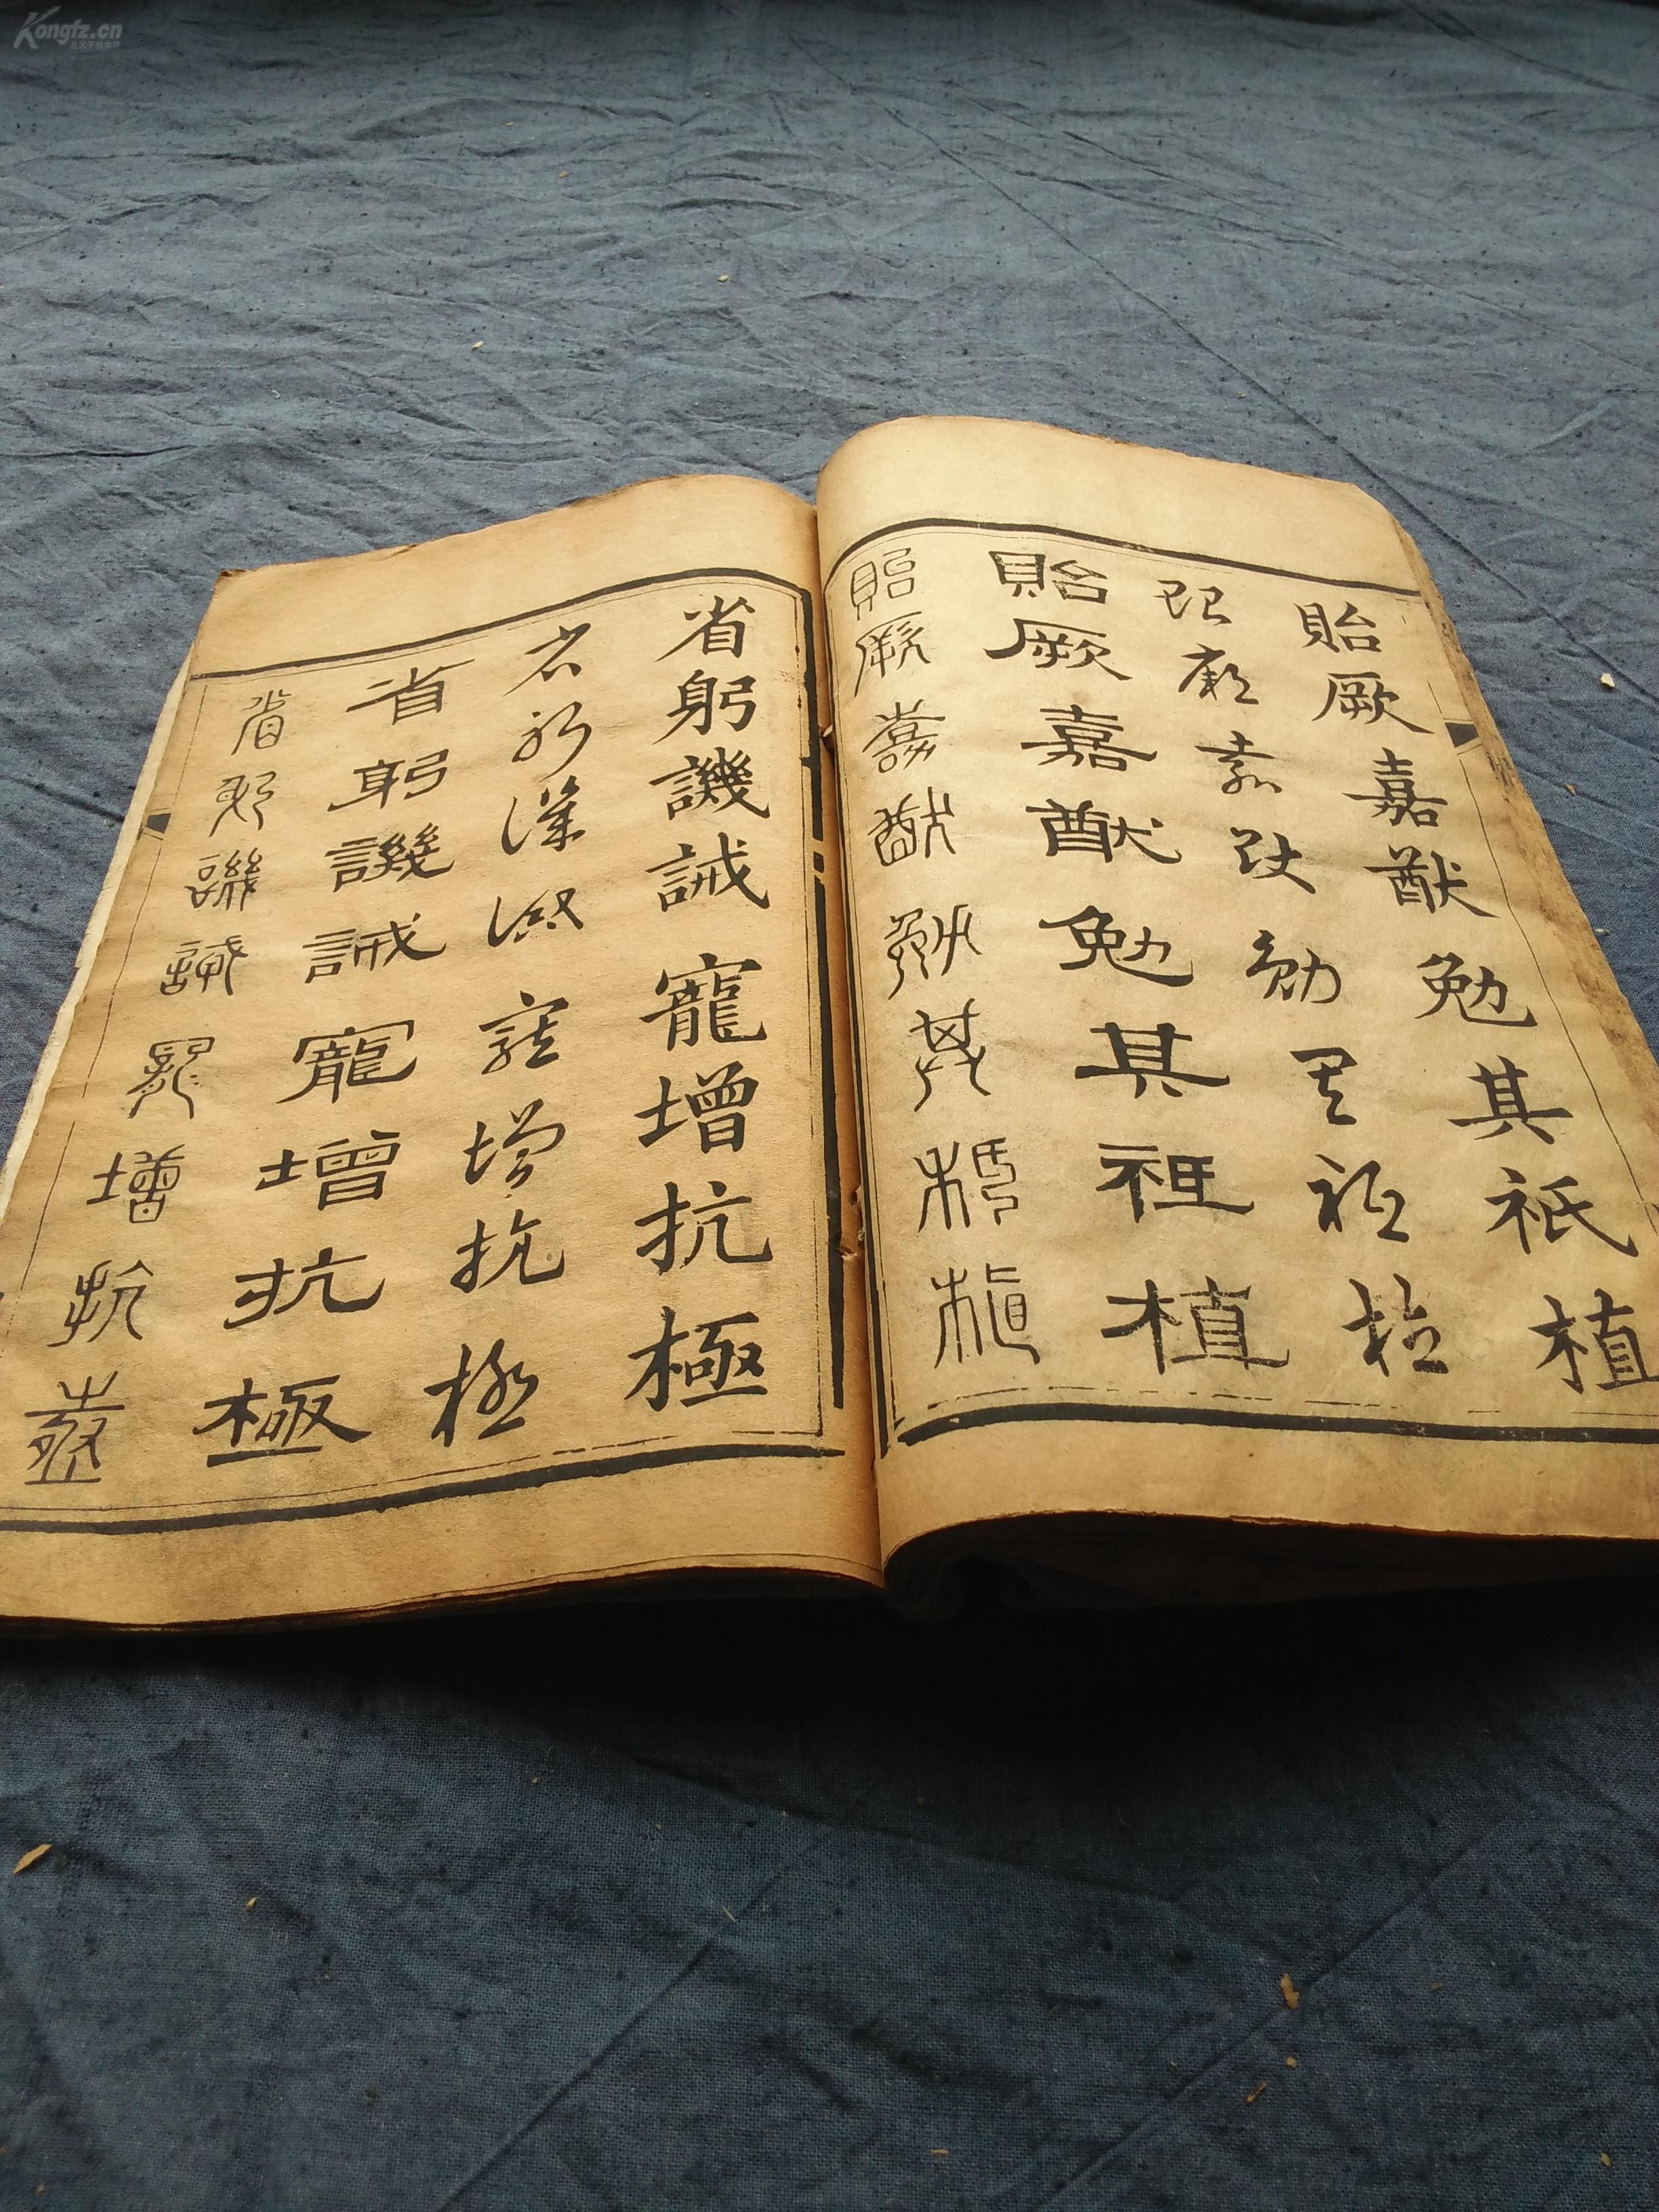 Kongfz.cn
孔夫子拍卖网
貽厥嘉猷勉其祇植
貽厥嘉猷勉其祇植
貽厥嘉猷勉其祗植
貽厥嘉猷勉其祇植
省躬譏誡寵增抗極
省躬譏誡寵增抗極
省躬譏誡寵增抗極
省躬譏誡寵增抗極